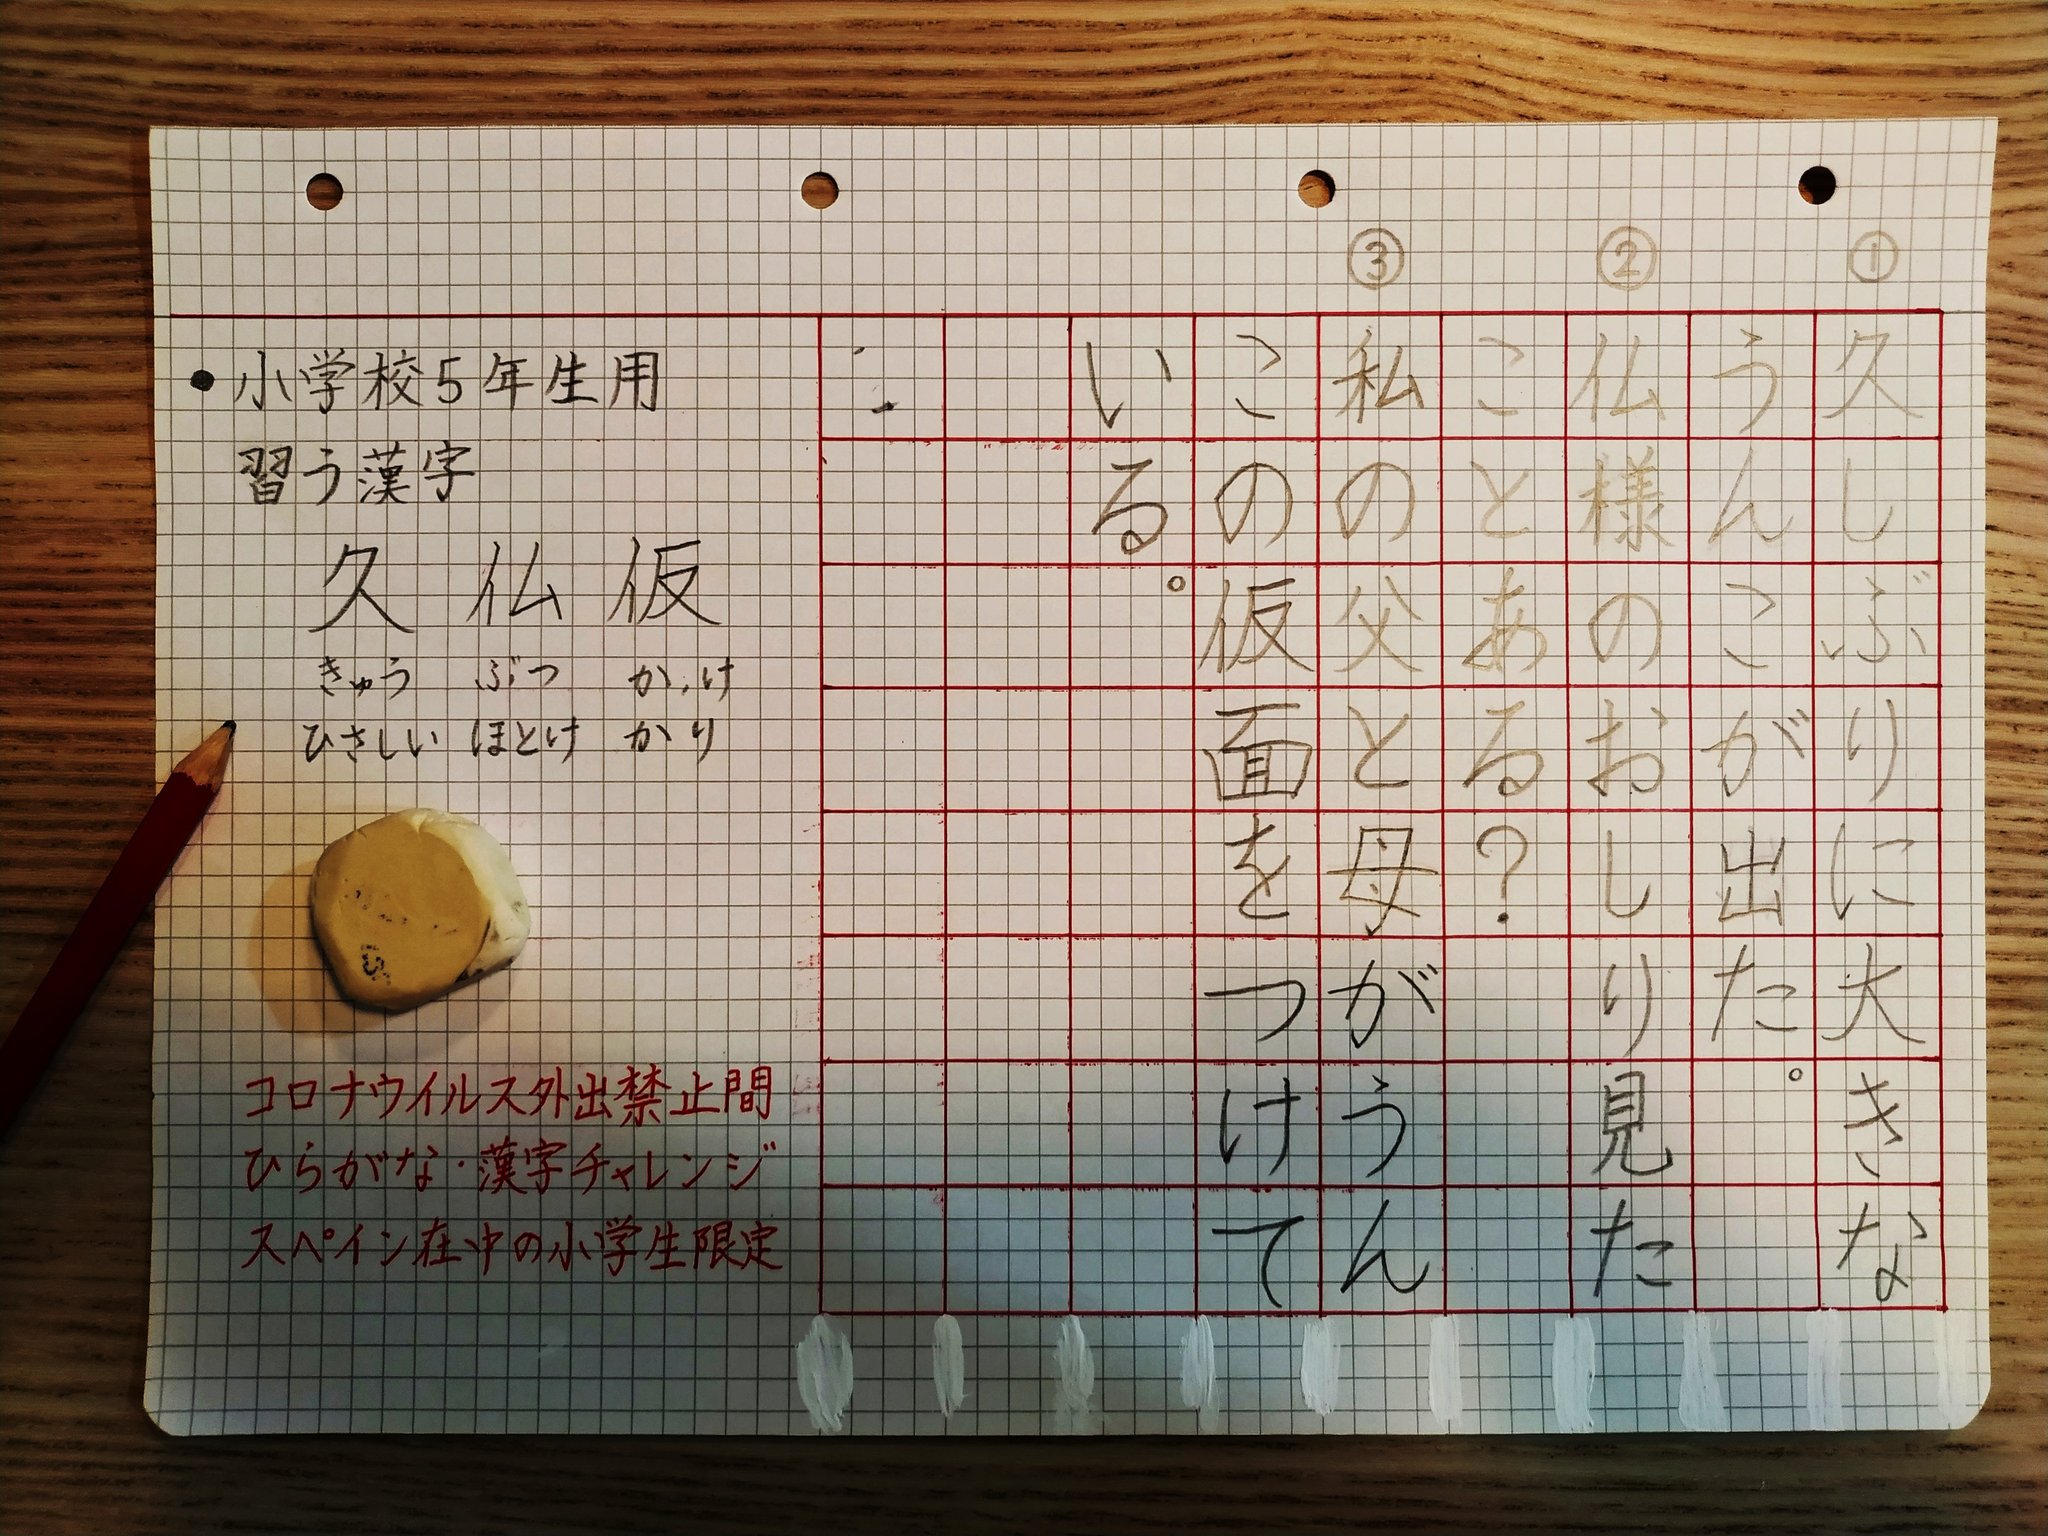 ①
久しぶりに大きな
うんこが出た。
②
仏様のおしり見た
ことある？
③
私の父と母がうん
この仮面をつけて
いる。
●小学校5年生用
習う漢字
久 仏 仮
きゅう ぶつ か、け
ひさしい ほとけ かり
コロナウイルス外出禁止間
ひらがな・漢字チャレンジ
スペイン在中の小学生限定